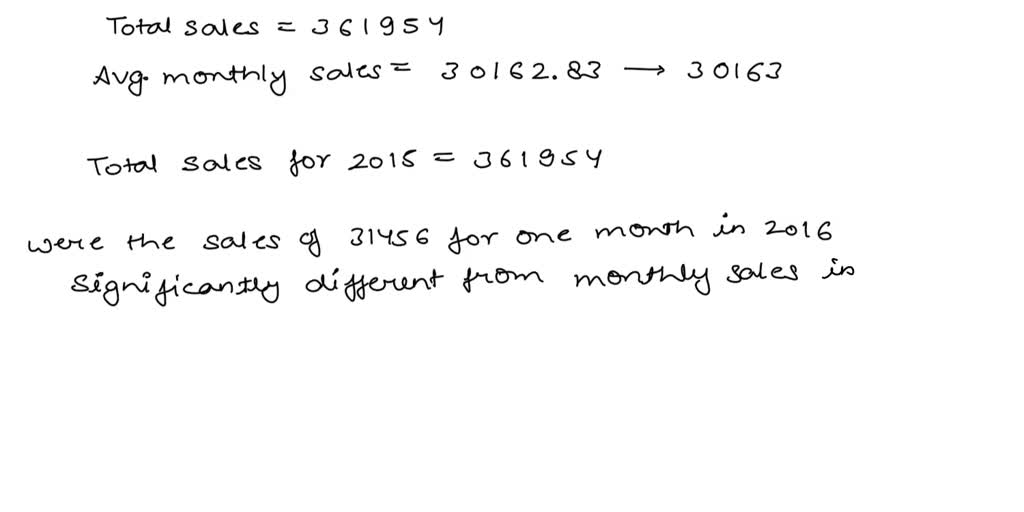 Total sales = 361954
Avg. monthly sales = 30162.83 → 30163
Total sales for 2015 = 361954
were the sales of 31456 for one month in 2016
significantly different from monthly sales in